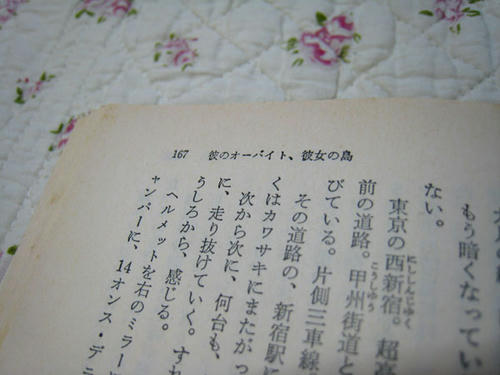 167 彼のオートバイ、彼女の島
もう暗くなってい
ない。
東京の西新宿。超高
前の道路。甲州街道と
びている。片側三車線
その道路の、新宿駅に
くはカワサキにまたがっ
次から次に、何台も、
に、走り抜けていく。すれ
うしろから、感じる。
ヘルメットを右のミラーに
ャンパーに、14オンス・デニ